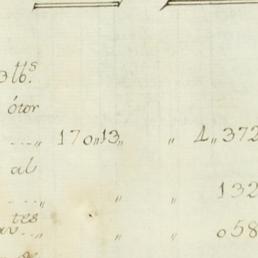 3 lbs.
ótor
....,, 170,,13,, ,, 4,,372
al
....,, ,, 132
tes
,, ,, 058